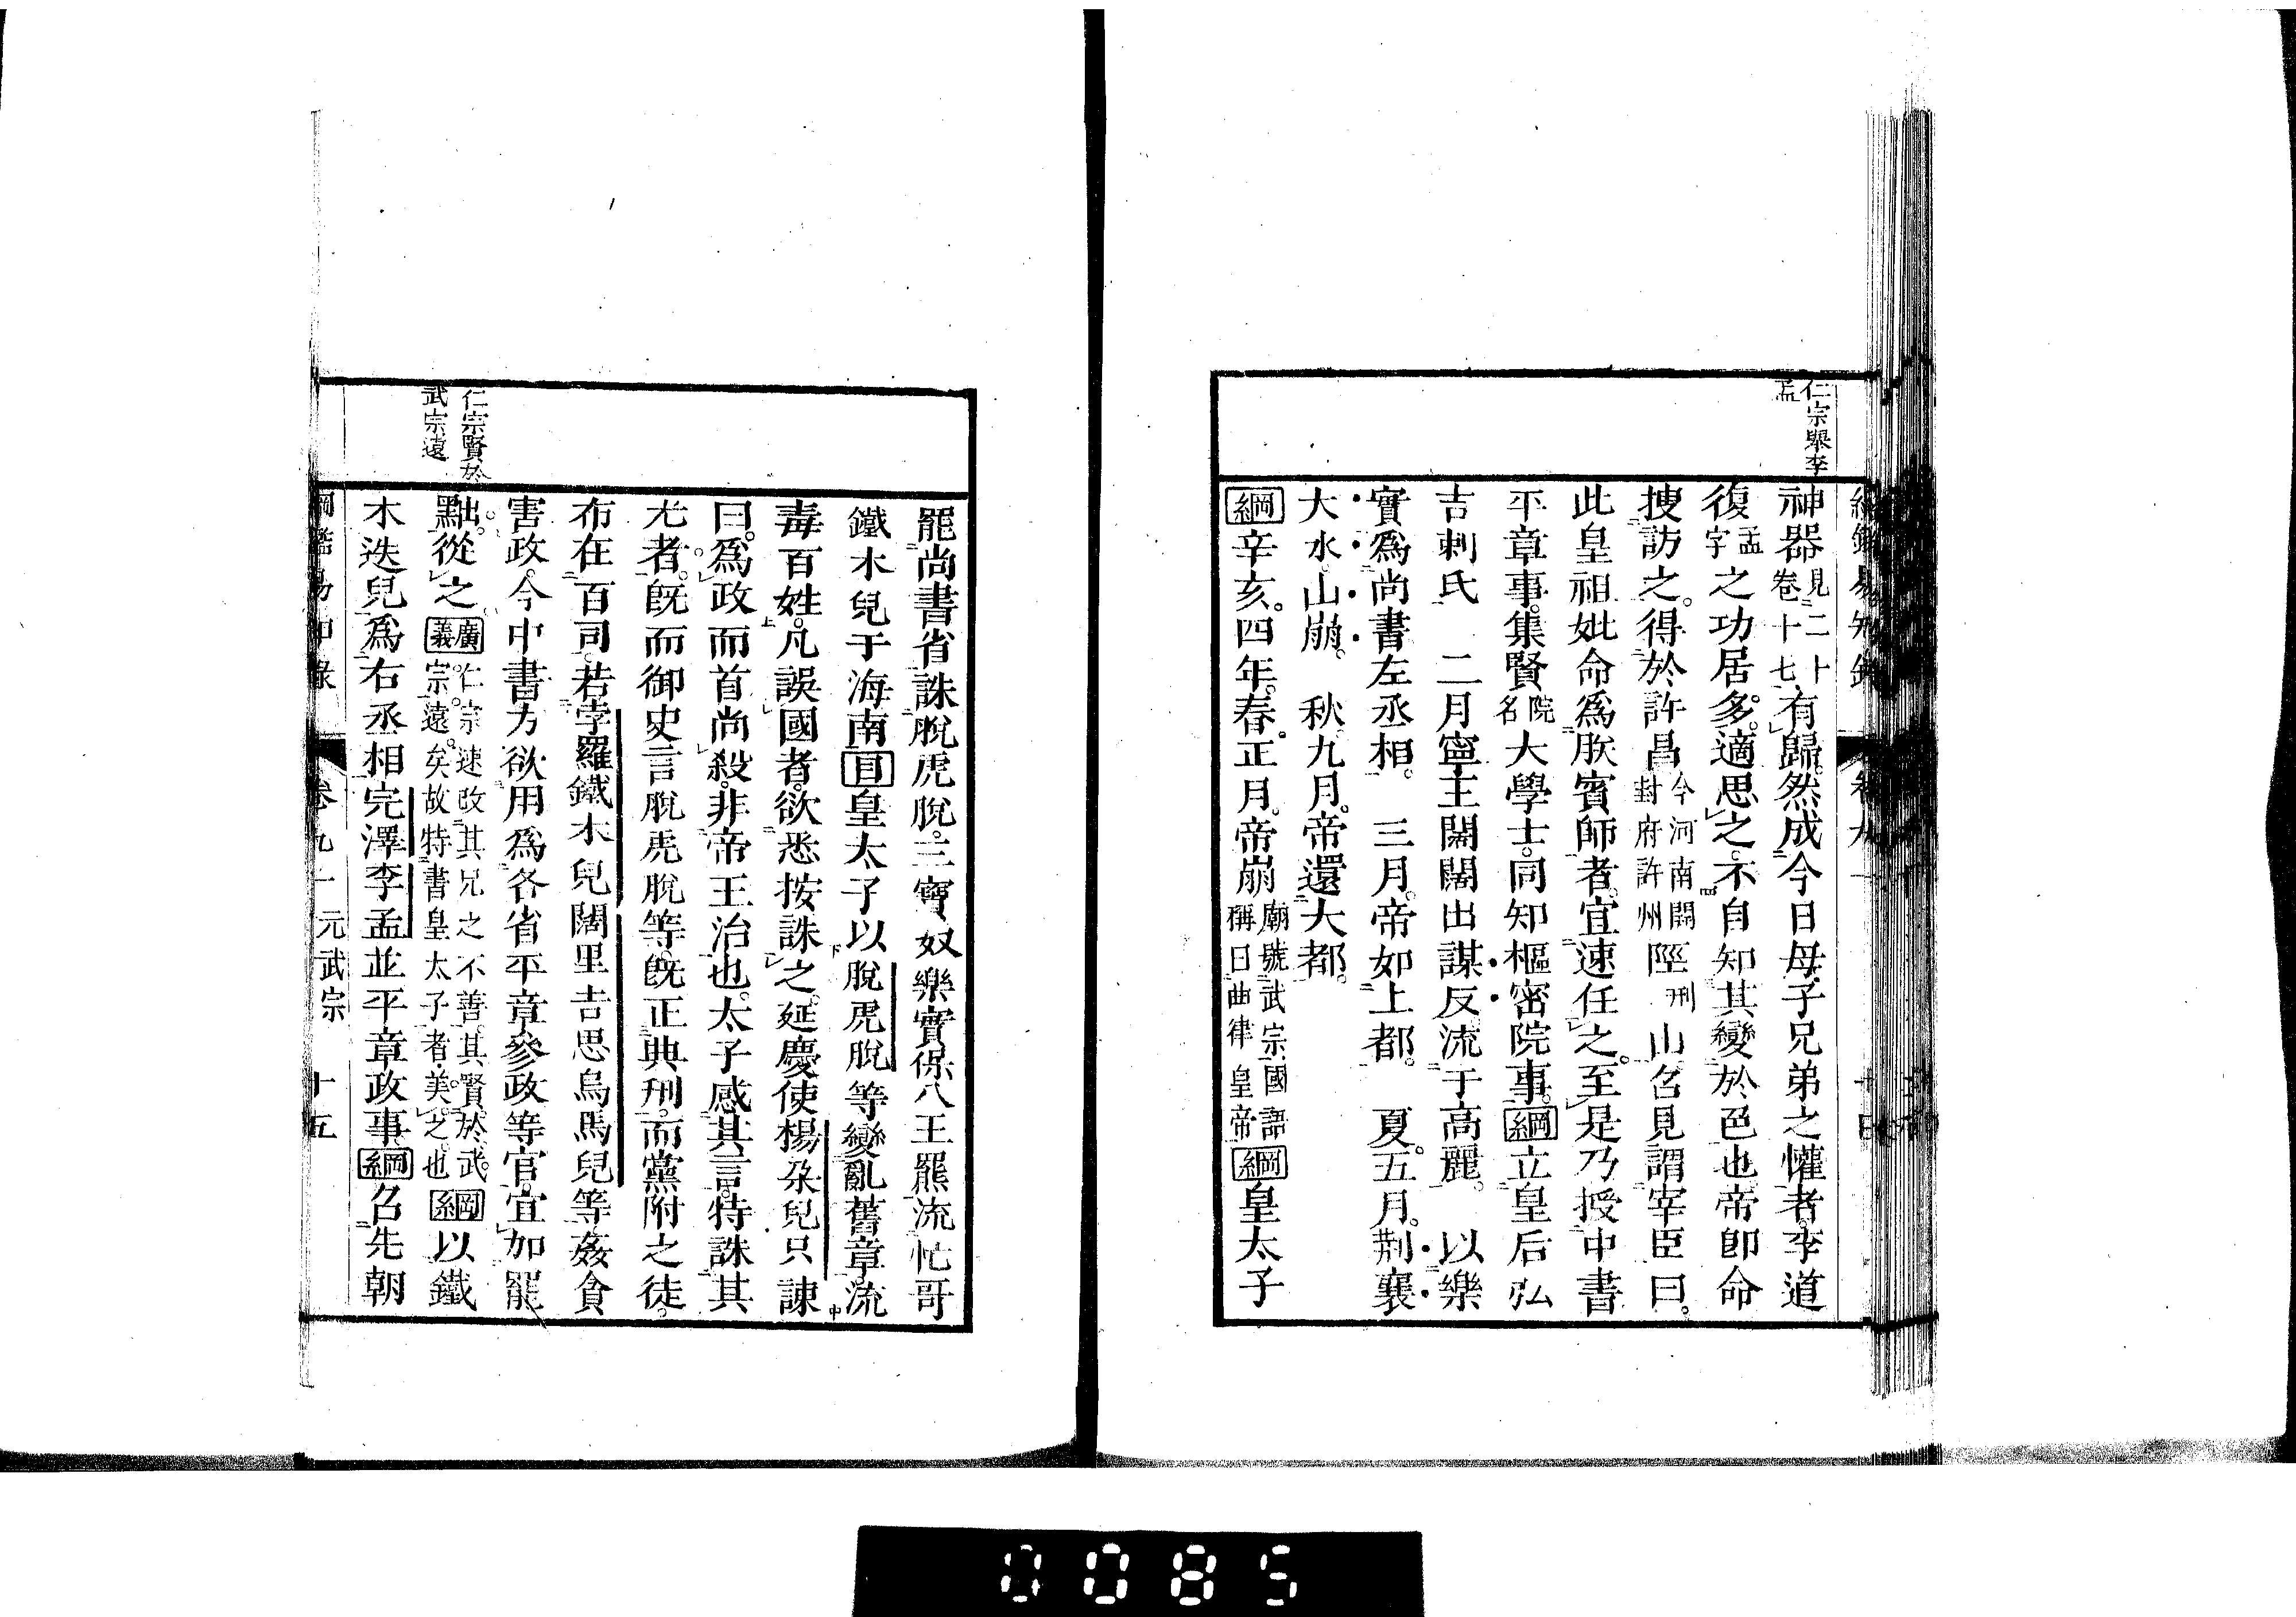 仁宗舉李
孟
神器見二十卷十七有歸。然成今日母子兄弟之懽者。李道
復孟字之功居多。適思之。不自知其變於色也帝卽命
搜訪之。得於許昌今河南開封府許州陘刑山召見謂宰臣曰。
此皇祖妣命爲朕賓師者。宜速任之。至是乃授中書
平章事。集賢院名大學士。同知樞密院事。綱立皇后弘
吉剌氏 二月寧王闊闊出謀反流于高麗。 以樂
實爲尚書左丞相。 三月。帝如上都。 夏。五月。荆襄
大水。山崩。 秋。九月。帝還大都。
綱辛亥。四年。春。正月。帝崩廟號武宗國語稱曰曲律皇帝綱皇太子
罷尚書省誅脫虎脫。三寶奴樂實保八王羆流忙哥
鐵木兒于海南目皇太子以脫虎脫等變亂舊章流
毒百姓。凡誤國者。欲悉按誅之。延慶使楊朶兒只諫
曰。爲政而首尚殺。非帝王治也。太子感其言。特誅其
尤者。旣而御史言脫虎脫等。旣正典刑。而黨附之徒。
布在百司。若孛羅鐵木兒闊里吉思烏馬兒等姦貪
害政。今中書方欲用爲各省平章參政等官。宜加罷
黜。從之廣義仁宗速改其兄之不善。其賢於武宗。遠矣。故特書皇太子者。美之。也綱以鐵
木迭兒爲右丞相完澤李孟並平章政事綱召先朝
仁宗賢於
武宗遠
綱鑑易知錄 卷九一 元武宗 十五
0085